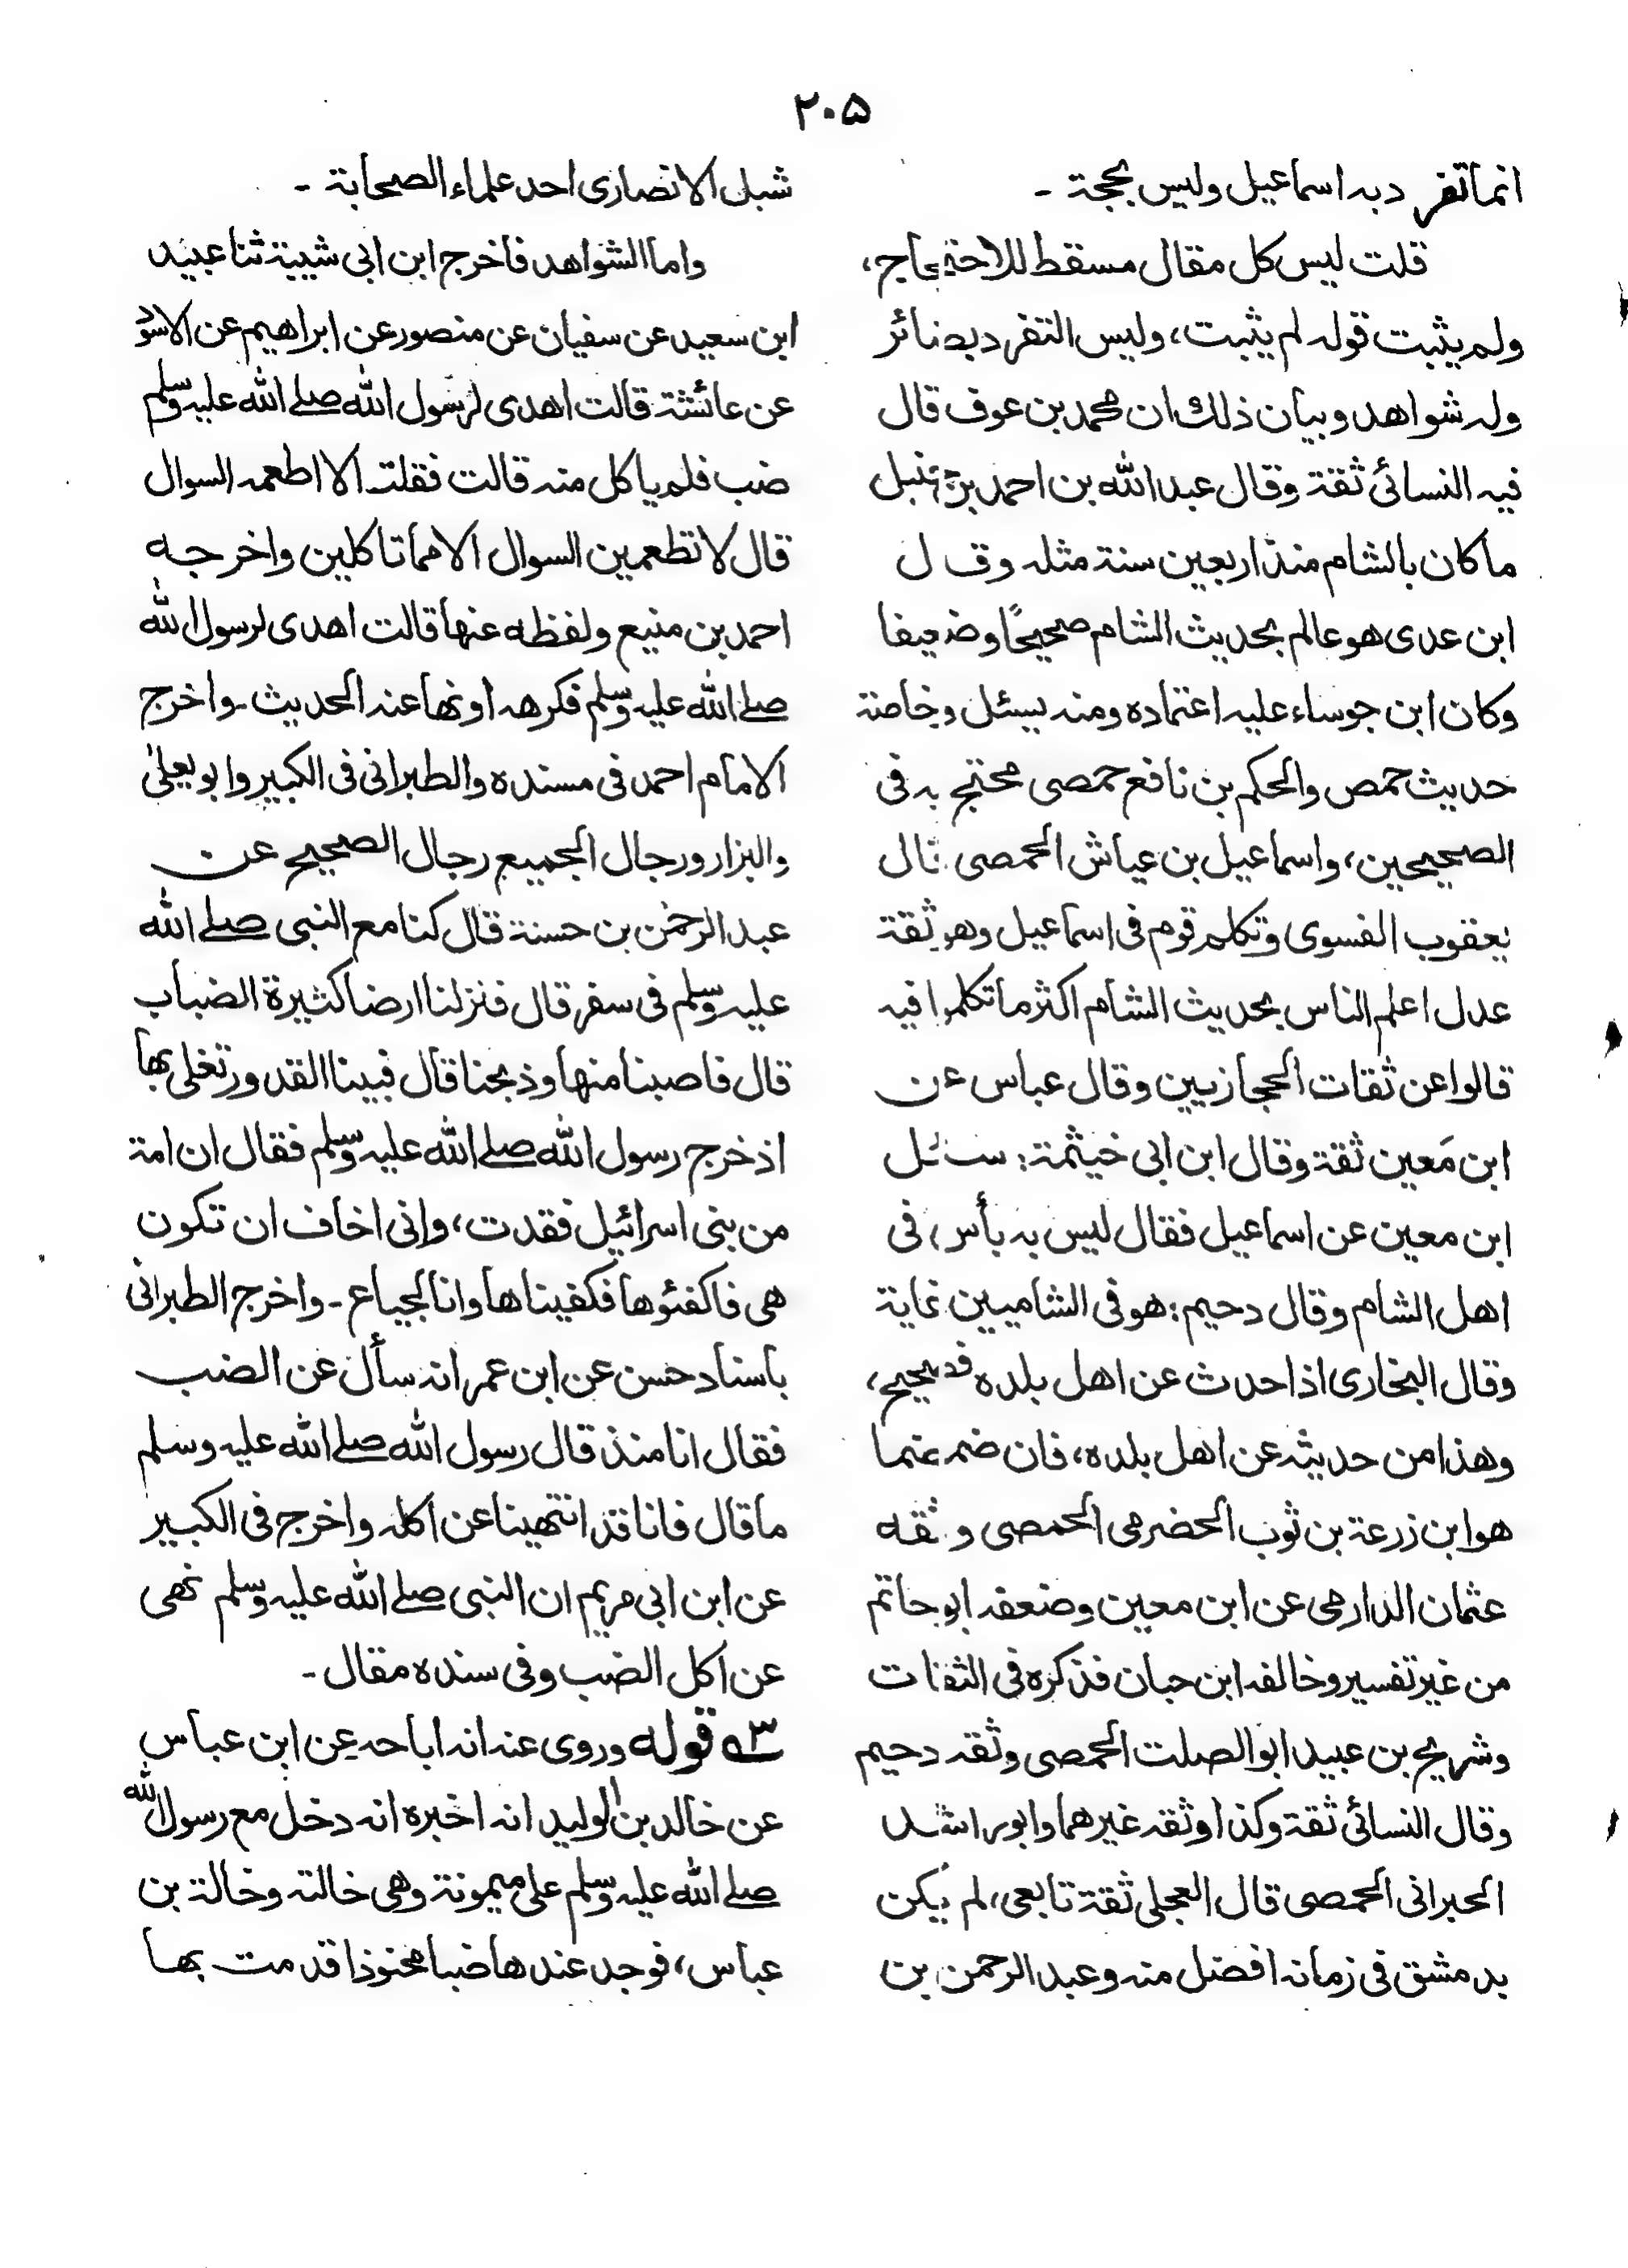 ۲۰۵
انما تفر دبه اسماعیل ولیس بحجة -
قلت لیس کل مقال مسقط للاحتجاج،
ولم یثبت قوله لم یثبت، ولیس التفر دبه ضائر
وله شواهد وبیان ذلك ان محمد بن عوف قال
فیه النسائی ثقة وقال عبد الله بن احمد بن حنبل
ما کان بالشام منذ اربعین سنة مثله وقال
ابن عدی هو عالم بحدیث الشام صحیحًا وضعیفا
وکان ابن جوساء علیه اعتماده ومنه یسئل وخاصة
حدیث حمص والحکم بن نافع حمصی محتج به فی
الصحیحین، واسماعیل بن عیاش الحمصی قال
یعقوب الفسوی وتکلم قوم فی اسماعیل وهو ثقة
عدل اعلم الناس بحدیث الشام اکثر ما تکلموا فیه
قالوا عن ثقات الحجازیین وقال عباس عن
ابن مَعین ثقة وقال ابن ابی خیثمة: سئل
ابن معین عن اسماعیل فقال لیس به بأس فی
اهل الشام وقال دحیم: هو فی الشامیین غایة
وقال البخاری اذا حدث عن اهل بلده فصحیح،
وهذا من حدیثه عن اهل بلده، فان ضمضما
هو ابن زرعة بن ثوب الحضرمی الحمصی وثقه
عثمان الدارمی عن ابن معین وضعفه ابو حاتم
من غیر تفسیر وخالفه ابن حبان فذکره فی الثقات
وشریح بن عبید ابو الصلت الحمصی وثقه دحیم
وقال النسائی ثقة وکذا وثقه غیرهما وابو راشد
الحبرانی الحمصی قال العجلی ثقة تابعی، لم یکن
بدمشق فی زمانه افضل منه وعبد الرحمن بن
شبل الانصاری احد علماء الصحابة -
واما الشواهد فاخرج ابن ابی شیبة ثنا عبید
ابن سعید عن سفیان عن منصور عن ابراهیم عن الاسود
عن عائشة قالت اهدی لرسول الله صلے الله علیه وسلم
ضب فلم یاکل منه قالت فقلت الا اطعمه السوال
قال لا تطعمین السوال الا مما تاکلین واخرجه
احمد بن منیع ولفظه عنها قالت اهدی لرسول الله
صلے الله علیه وسلم فکرهه او نهاعنه الحدیث - واخرج
الامام احمد فی مسنده والطبرانی فی الکبیر وابو یعلیٰ
والبزار ورجال الجمیع رجال الصحیح عن
عبد الرحمٰن بن حسنة قال کنا مع النبی صلے الله
علیه وسلم فی سفر قال فنزلنا ارضا کثیرة الضباب
قال فاصبنا منها وذبحنا قال فبینا القدور تغلی بها
اذ خرج رسول الله صلے الله علیه وسلم فقال ان امة
من بنی اسرائیل فقدت، وانی اخاف ان تکون
هی فاکفئوها فکفیناها وانا لجیاع - واخرج الطبرانی
باسناد حسن عن ابن عمر انه سأل عن الضب
فقال انا منذ قال رسول الله صلے الله علیه وسلم
ما قال فانا قد انتهینا عن اکله واخرج فی الکبیر
عن ابن ابی مریم ان النبی صلے الله علیه وسلم نهی
عن اکل الضب وفی سنده مقال -
۳ه قوله وروی عنه انه اباحه عن ابن عباس
عن خالد بن الولید انه اخبره انه دخل مع رسول الله
صلے الله علیه وسلم علی میمونة وهی خالته وخالة بن
عباس، فوجد عندها ضبا محنوذا قدمت بها